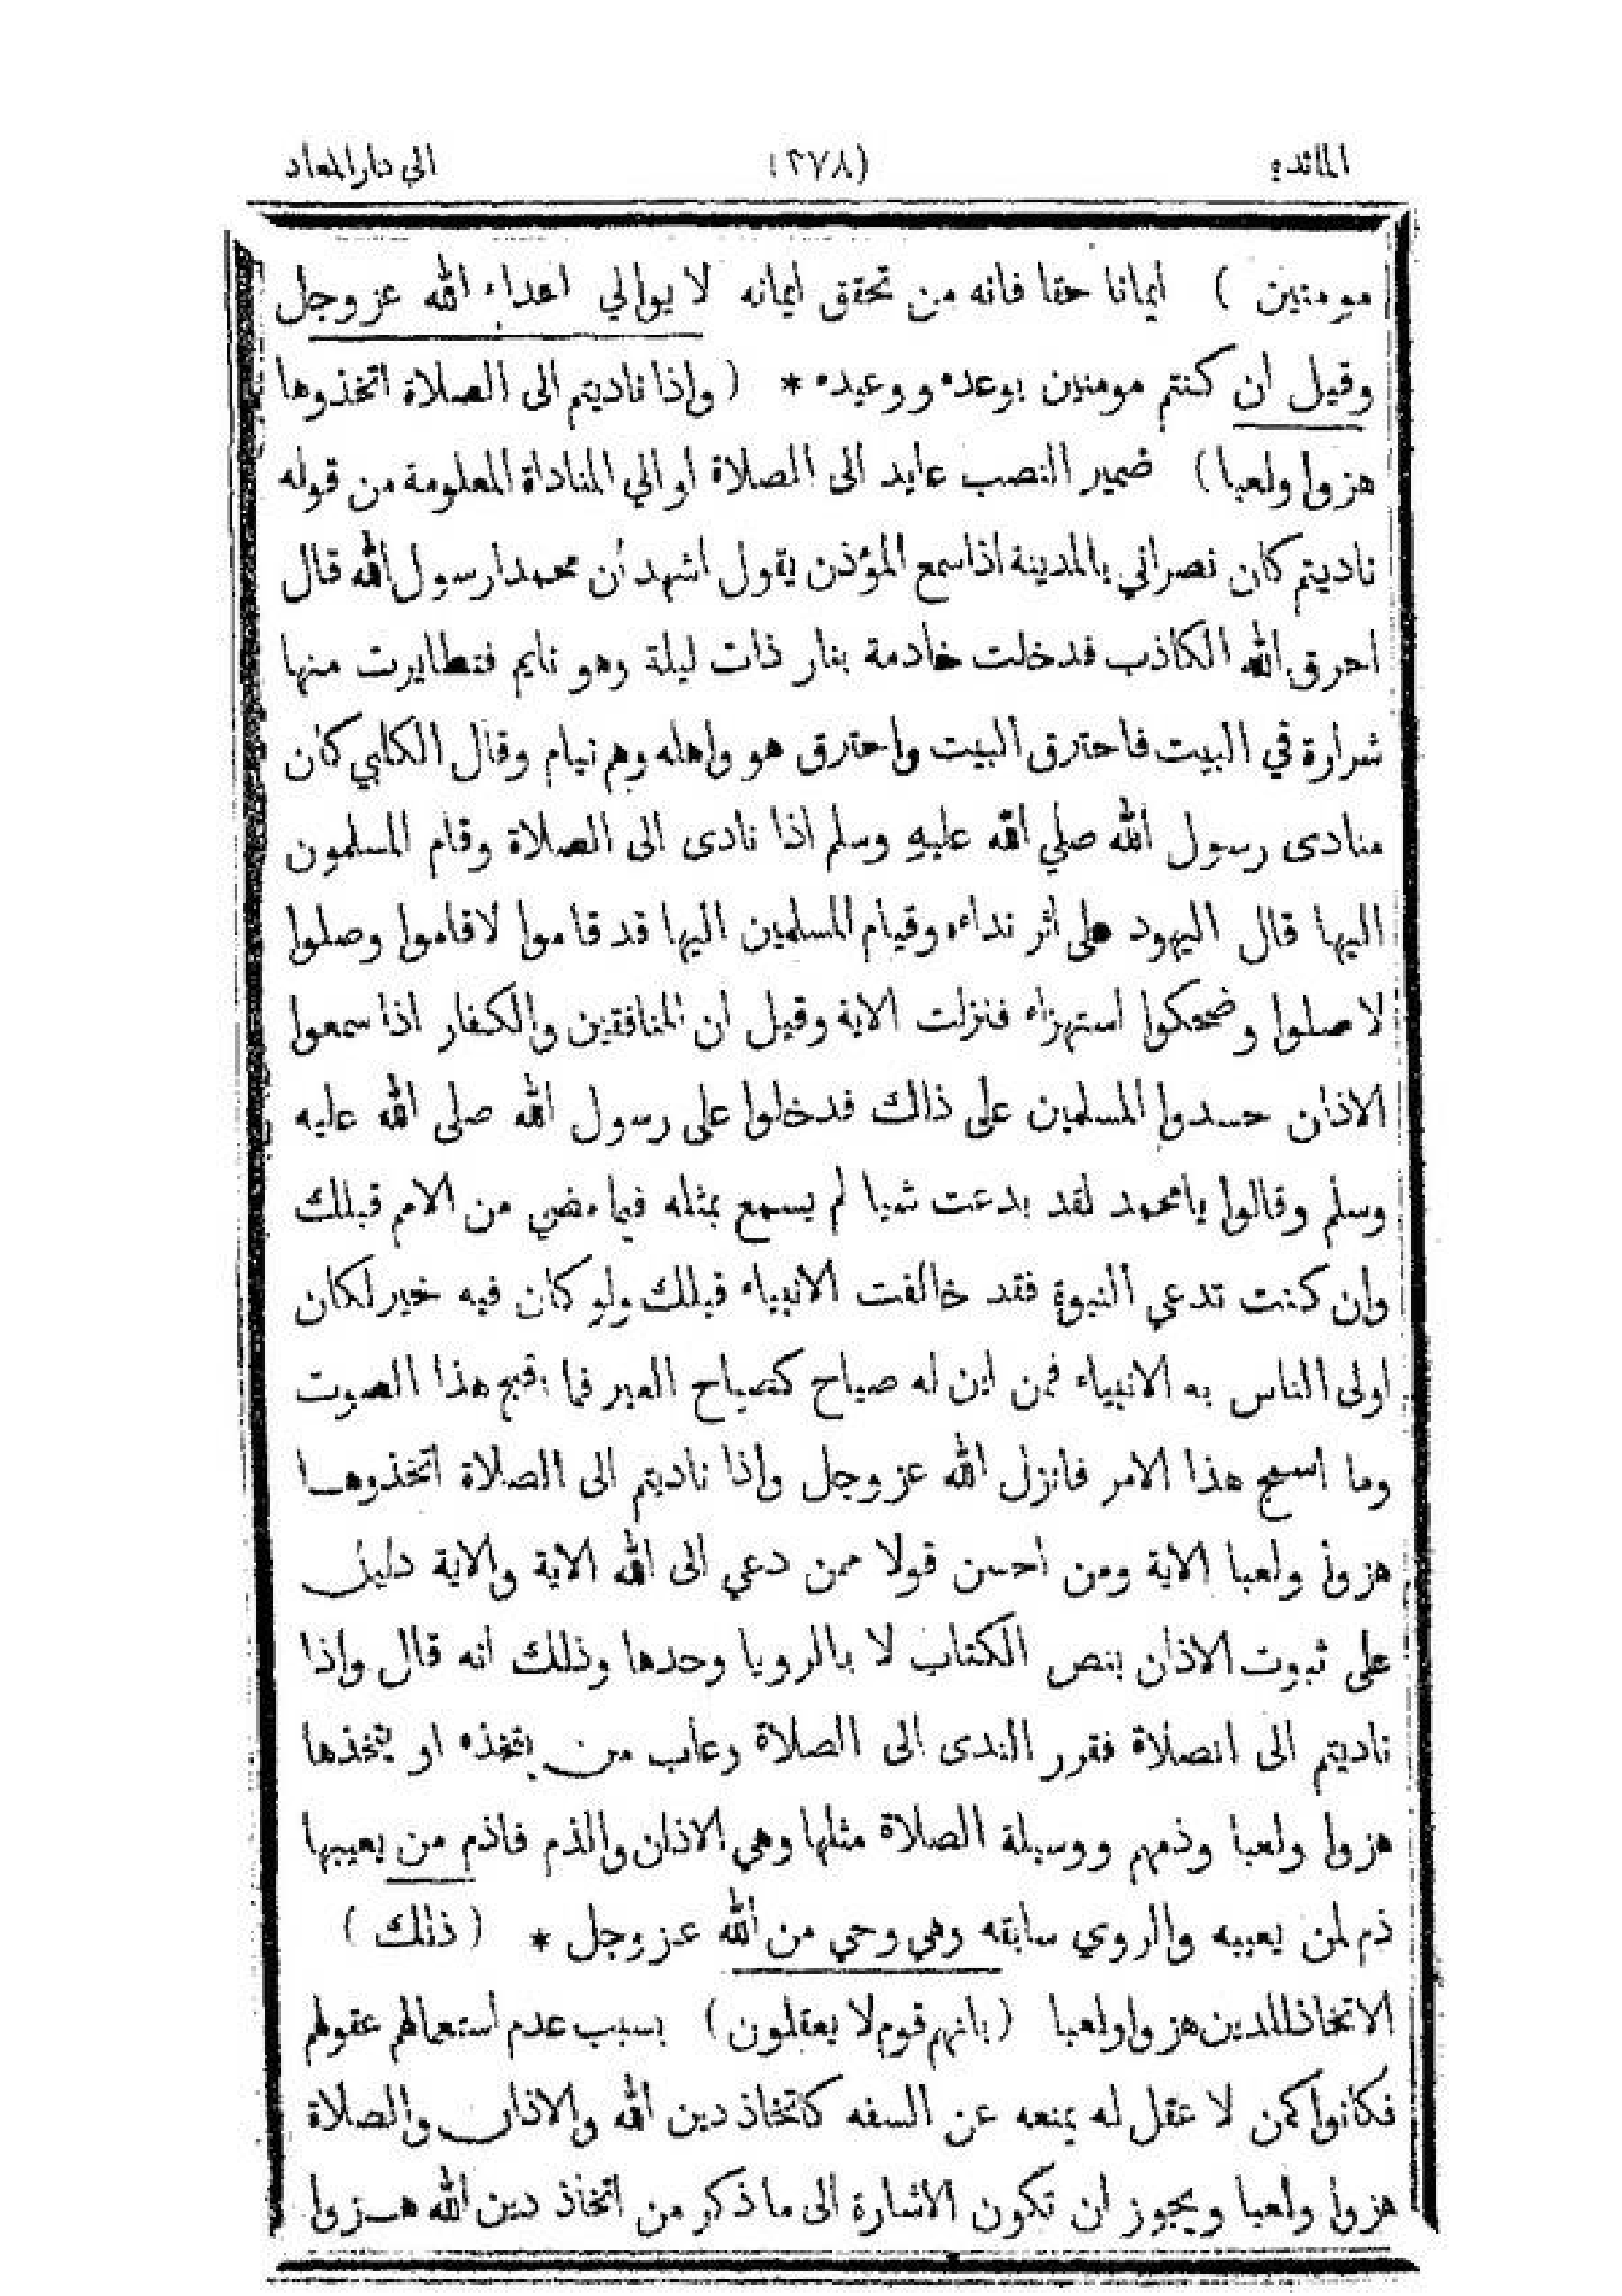 المائدة (٢٧٨) الى دار المعاد
مومنين ) ايمانا حقا فانه من تحقق ايمانه لا يوالي اعداء الله عز وجل
وقيل ان كنتم مومنين بوعده ووعيده * ( واذا ناديتم الى الصلاة اتخذوها
هزوا ولعبا ) ضمير النصب عايد الى الصلاة او الي المناداة المعلومة من قوله
ناديتم كان نصراني بالمدينة اذا سمع المؤذن يقول اشهد أن محمدا رسول الله قال
احرق الله الكاذب فدخلت خادمة بنار ذات ليلة وهو نايم فتطايرت منها
شرارة في البيت فاحترق البيت واحترق هو واهله وهم نيام وقال الكلبي كان
منادى رسول الله صلي الله عليه وسلم اذا نادى الى الصلاة وقام المسلمون
اليها قال اليهود على اثر نداءه وقيام المسلمين اليها قد قاموا لا قاموا وصلوا
لا صلوا وضحكوا استهزاء فنزلت الاية وقيل ان المنافقين والكفار اذا سمعوا
الاذان حسدوا المسلمين على ذالك فدخلوا على رسول الله صلى الله عليه
وسلم وقالوا يا محمد لقد بدعت شيا لم يسمع بمثله فيما مضي من الامم قبلك
وان كنت تدعي النبوة فقد خالفت الانبياء قبلك ولو كان فيه خير لكان
اولى الناس به الانبياء فمن اين له صياح كصياح العير فما اقبح هذا الصوت
وما اسمج هذا الامر فانزل الله عز وجل واذا ناديتم الى الصلاة اتخذوها
هزوا ولعبا الاية ومن احسن قولا ممن دعي الى الله الاية والاية دليل
على ثبوت الاذان بنص الكتاب لا بالرويا وحدها وذلك انه قال واذا
ناديتم الى الصلاة فقرر الندى الى الصلاة وعاب من يتخذه او يتخذها
هزوا ولعبا وذمهم ووسيلة الصلاة مثلها وهي الاذان والذم فاذم من يعيبها
ذم لمن يعيبه والروي سابقه وهي وحي من الله عز وجل * ( ذلك )
الاتخاذ للدين هزوا ولعبا ( بانهم قوم لا يعقلون ) بسبب عدم استعمالهم عقولهم
فكانوا كمن لا عقل له يمنعه عن السفه كاتخاذ دين الله والاذان والصلاة
هزوا ولعبا ويجوز ان تكون الاشارة الى ما ذكر من اتخاذ دين الله هزوا